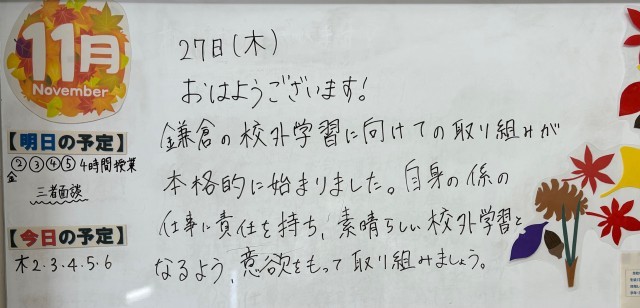 11月
November
【明日の予定】
金 ②③④⑤ 4時間授業
三者面談
【今日の予定】
木2・3・4・5・6
27日(木)
おはようございます!
鎌倉の校外学習に向けての取り組みが
本格的に始まりました。自身の係の
仕事に責任を持ち、素晴らしい校外学習と
なるよう、意欲をもって取り組みましょう。